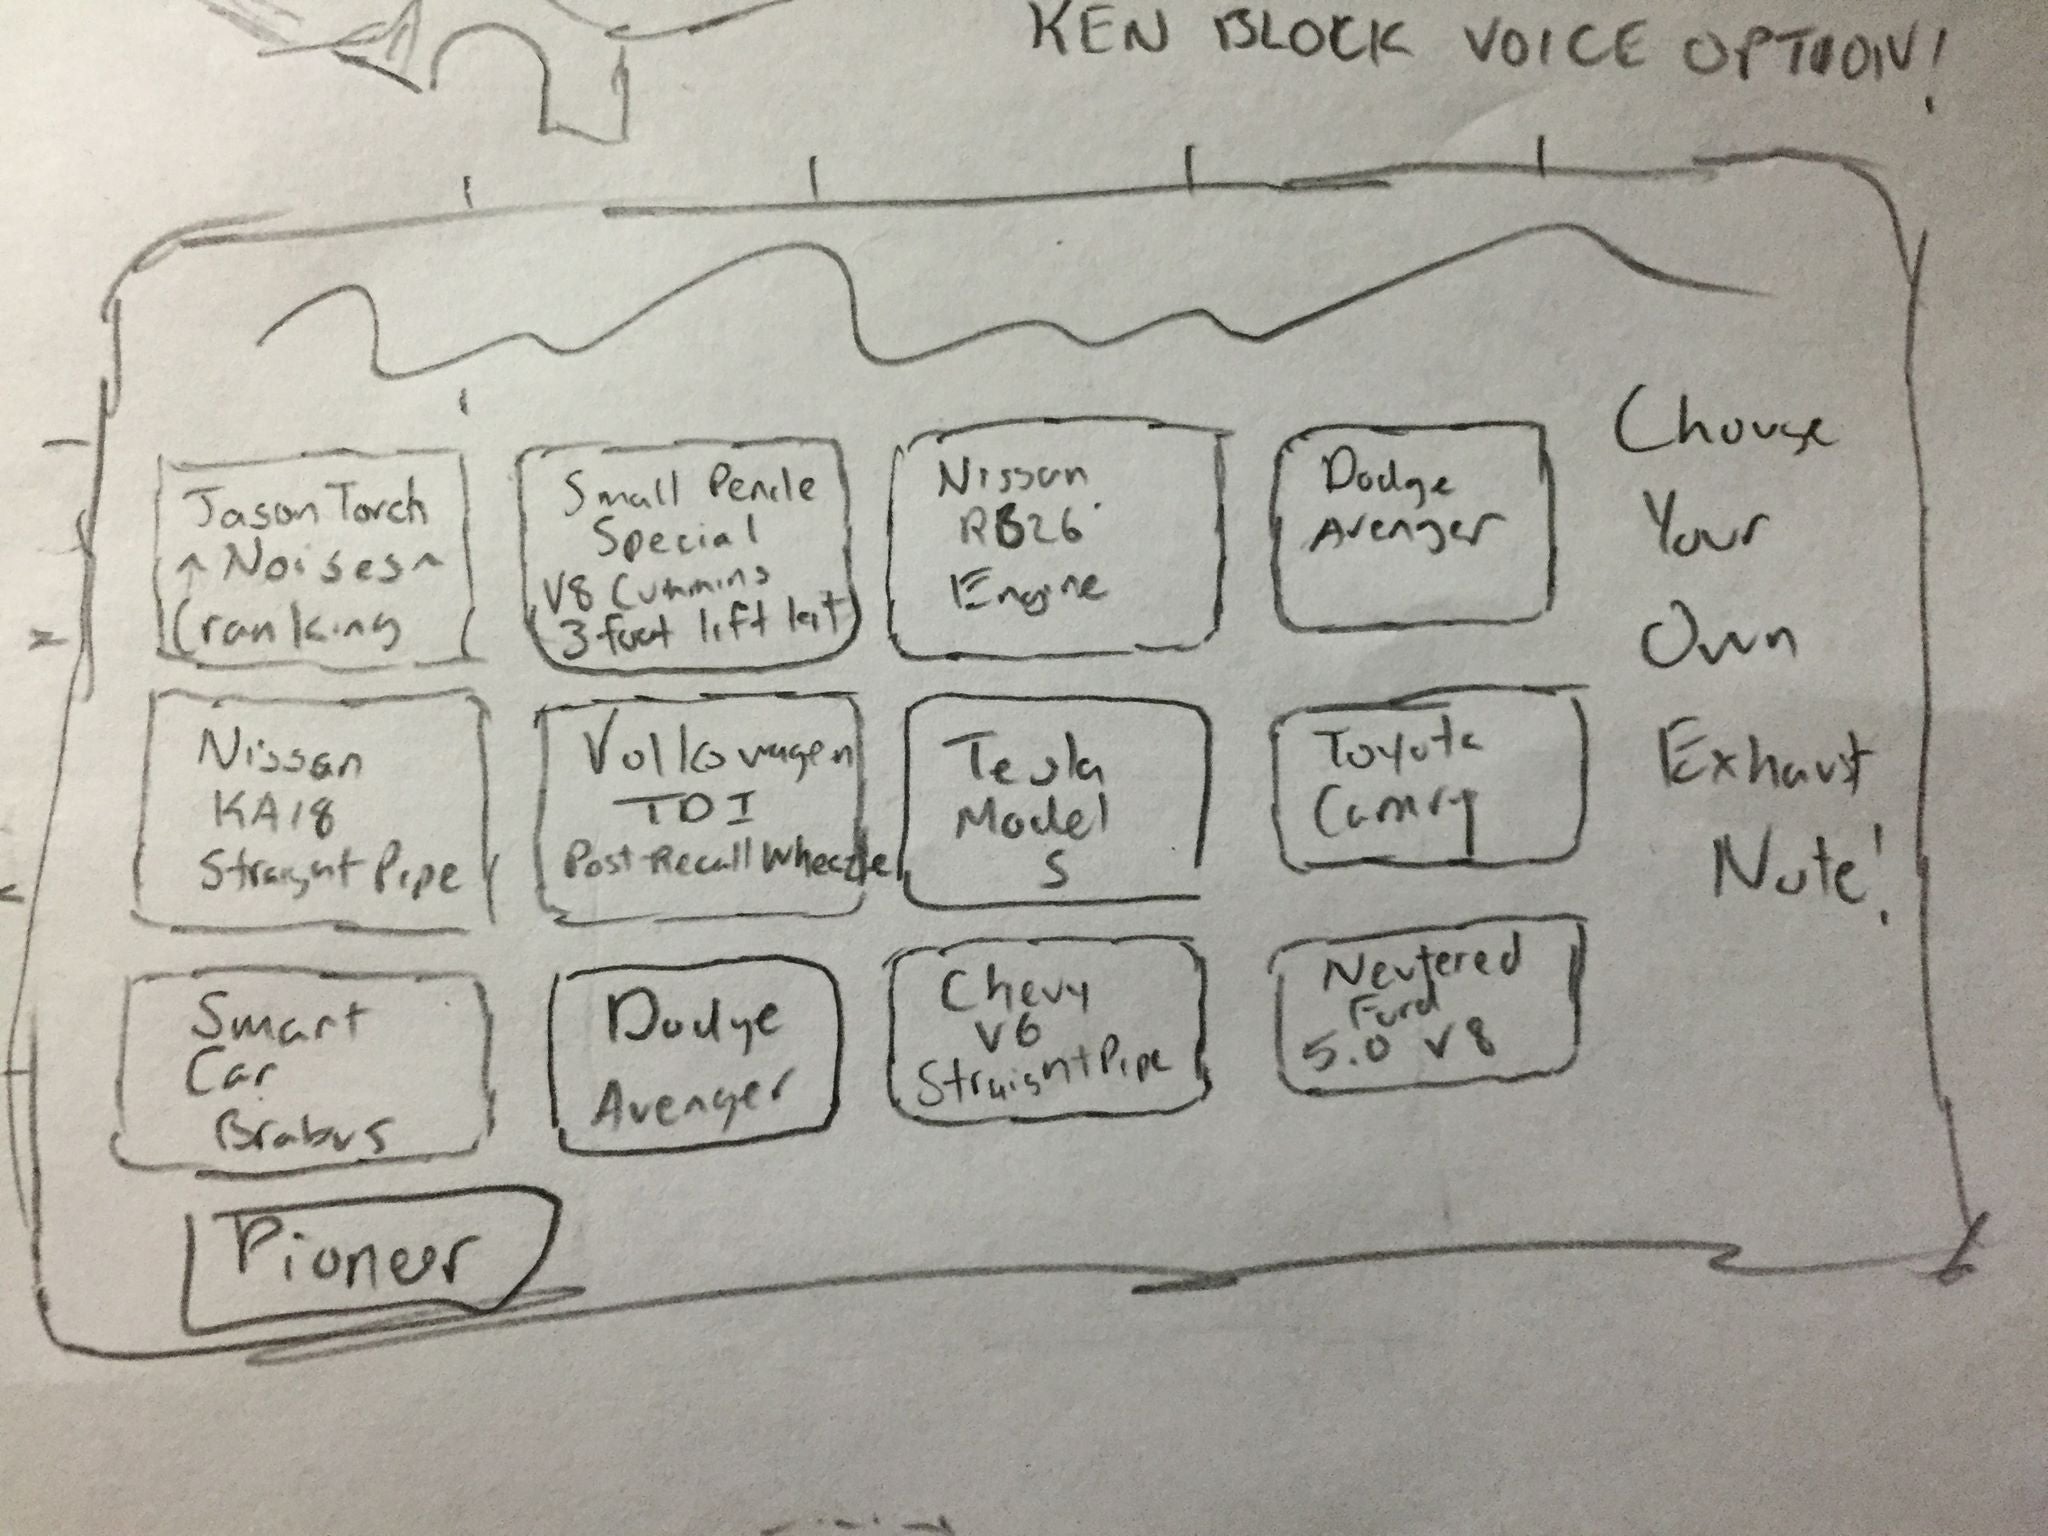 KEN BLOCK VOICE OPTION!
Jason Torch
^ Noises ^
Cranking
Small Penile
Special
V8 Cummins
3 foot lift kit
Nissan
RB26
Engine
Dodge
Avenger
Choose
Your
Own
Exhaust
Note!
Nissan
KA18
Straight Pipe
Volkswagen
TDI
Post-Recall Wheeze
Tesla
Model
S
Toyota
Camry
Smart
Car
Brabus
Dodge
Avenger
Chevy
V6
Straight Pipe
Neutered
Ford
5.0 V8
Pioneer